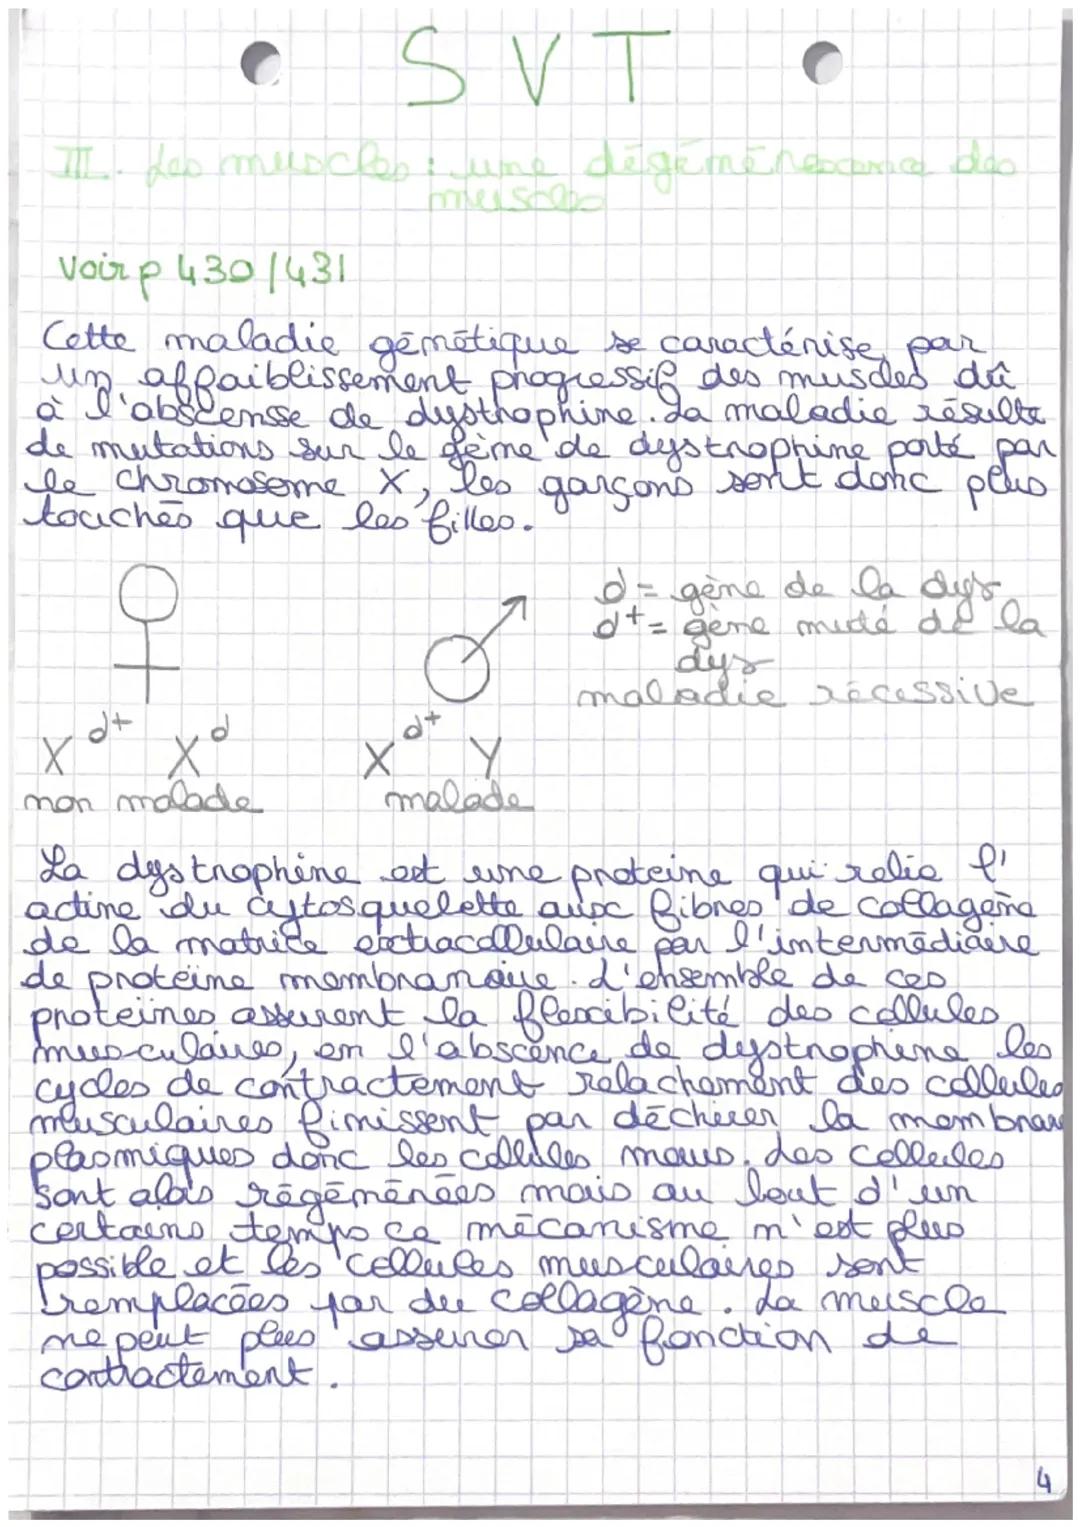 SVT
III. Les muscles : une dégénérescence des
muscles
Voir p 430/431
Cette maladie génétique se caractérise par
un affaiblissement progressif des muscles dû
à l'abscensse de dystrophine. La maladie résulte
de mutations sur le gène de dystrophine porté par
le chromosome X, les garçons sont donc plus
touchés que les filles.
d = gène de la dys
d+ = gène muté de la
dys
maladie récessive
X d+ X d
X d+ Y
non malade
malade
La dystrophine est une proteine qui relie l'
actine du cytosquelette aux fibres de collagène
de la matrice extracellulaire par l'intermédiaire
de protéine membranaire. L'ensemble de ces
proteines assurent la flexibilité des cellules
musculaires, en l'abscence de dystrophine les
cycles de contractement relachement des cellules
musculaires finissent par déchirer la membran
plasmiques donc les cellules meurs. Les cellules
sont alors régénérées mais au bout d'un
certains temps ce mécanisme n'est plus
possible et les cellules musculaires sont
remplacées par du collagène. La muscle
ne peut plus assurer sa fonction de
contractement.
4